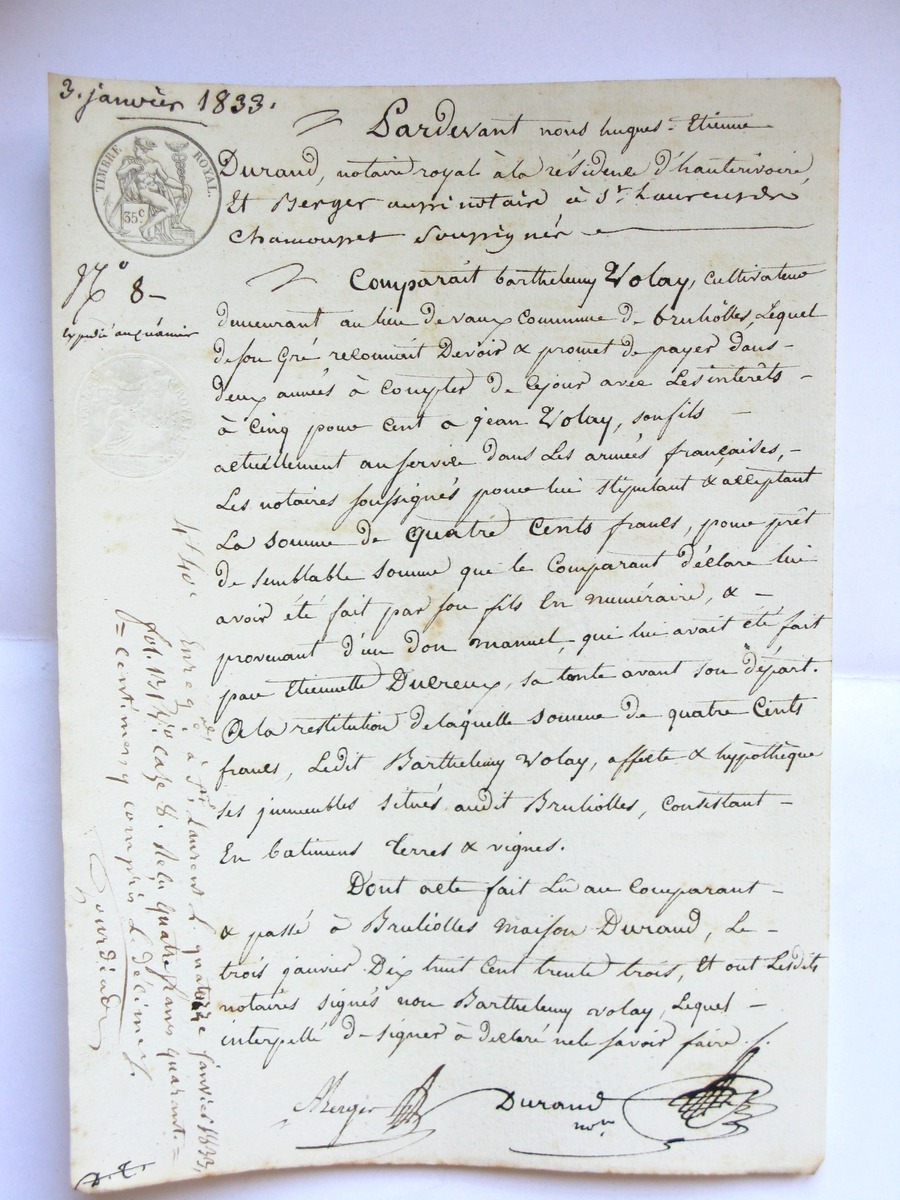 3. janvier 1833.
TIMBRE ROYAL
35c
Pardevant nous hugues-Etienne
Durand, notaire royal à la résidence d'hauterivoire,
Et Berger aussi notaire à St. Laurent de
Chamousset Soussignés
No 8-
Comparait barthelemy Volay, cultivateur
demeurant au lieu de vaux commune de brulliolles, Lequel
de son Gré reconnait Devoir & promet de payer dans-
deux années à Compter de Cejour avec Les interêts -
à Cinq pour Cent a jean Volay, son fils -
actuellement au service dans Les armées françaises, -
Les notaires soussignés pour lui stipulant & acceptant
La Somme de quatre Cents francs, pour prêt
de semblable somme que le Comparant Déclare lui
avoir été fait par son fils En numéraire, & -
provenant d'un Don manuel, qui lui avait été fait
par Etiennette Ducreux, sa tante avant son départ.
A la restitution de laquelle somme de quatre Cents
francs, Ledit Barthelemy Volay, affecte & hypothèque
ses immeubles situés audit Brulliolles, Consistant -
En batimens terres & vignes.
Dont acte fait Lû au Comparant -
& passé à Brulliolles maison Durand, Le -
trois janvier Dix huit Cent trente trois, Et ont Lesdits
notaires signés non Barthelemy Volay, Lequel -
interpellé de signer à déclaré ne le savoir faire /.
Berger
Durand
nore
4f 40c
Enreg à St Laurent L quatorze janvier 1833,
fol. 131 vo case 8. Reçu quatre francs quarant=
=centimes y compris L. décime.